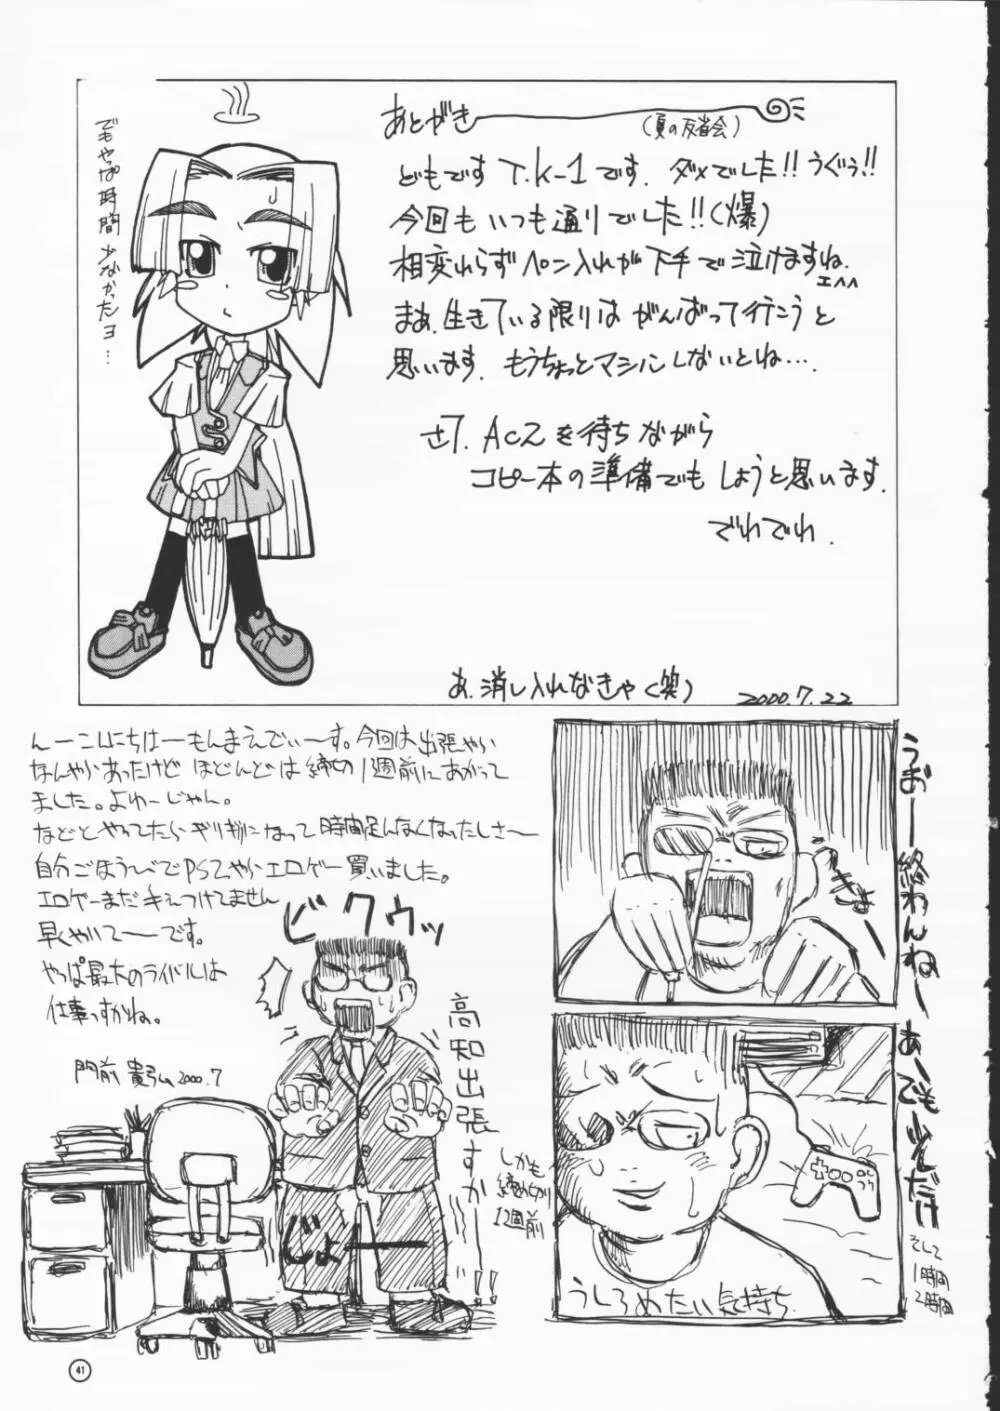 あとがき
(夏の反省会)
どもです T.K-1です. ダメでした!! うぐぅ!!
今回も いつも通りでした!!(爆)
相変わらずペン入れが下手で泣けますね.
エヘヘ
まぁ.生きている限りは がんばって行こうと
思います. もうちょっとマシにしないとね…
さて. AC2を待ちながら
コピー本の準備でも しようと思います.
でわでわ.
あ.消し入れなきゃ(笑)
2000.7.22
でもやっぱ時間少なかったヨ…
んーこんにちはーもんまえでぃーす。今回は出張やら
なんやらあったけど ほとんどは 締切1週前にあがって
ました。よゆーじゃん。
などとやってたらギリギリになって時間足んなくなったしさー
自分ごほうびでPS2やらエロゲー買いました。
エロゲーまだ手えつけてません
早くやりてーです。
やっぱ最大のライバルは
仕事っすかね。
門前 貴弘 2000.7
うおー終わんねー
あーでも少しだけ
そして
1時間
2時間
うしろめたい気持ち
ビクウッ
高知出張すか!!
しかも
締め切り
1週前
じょーー
41